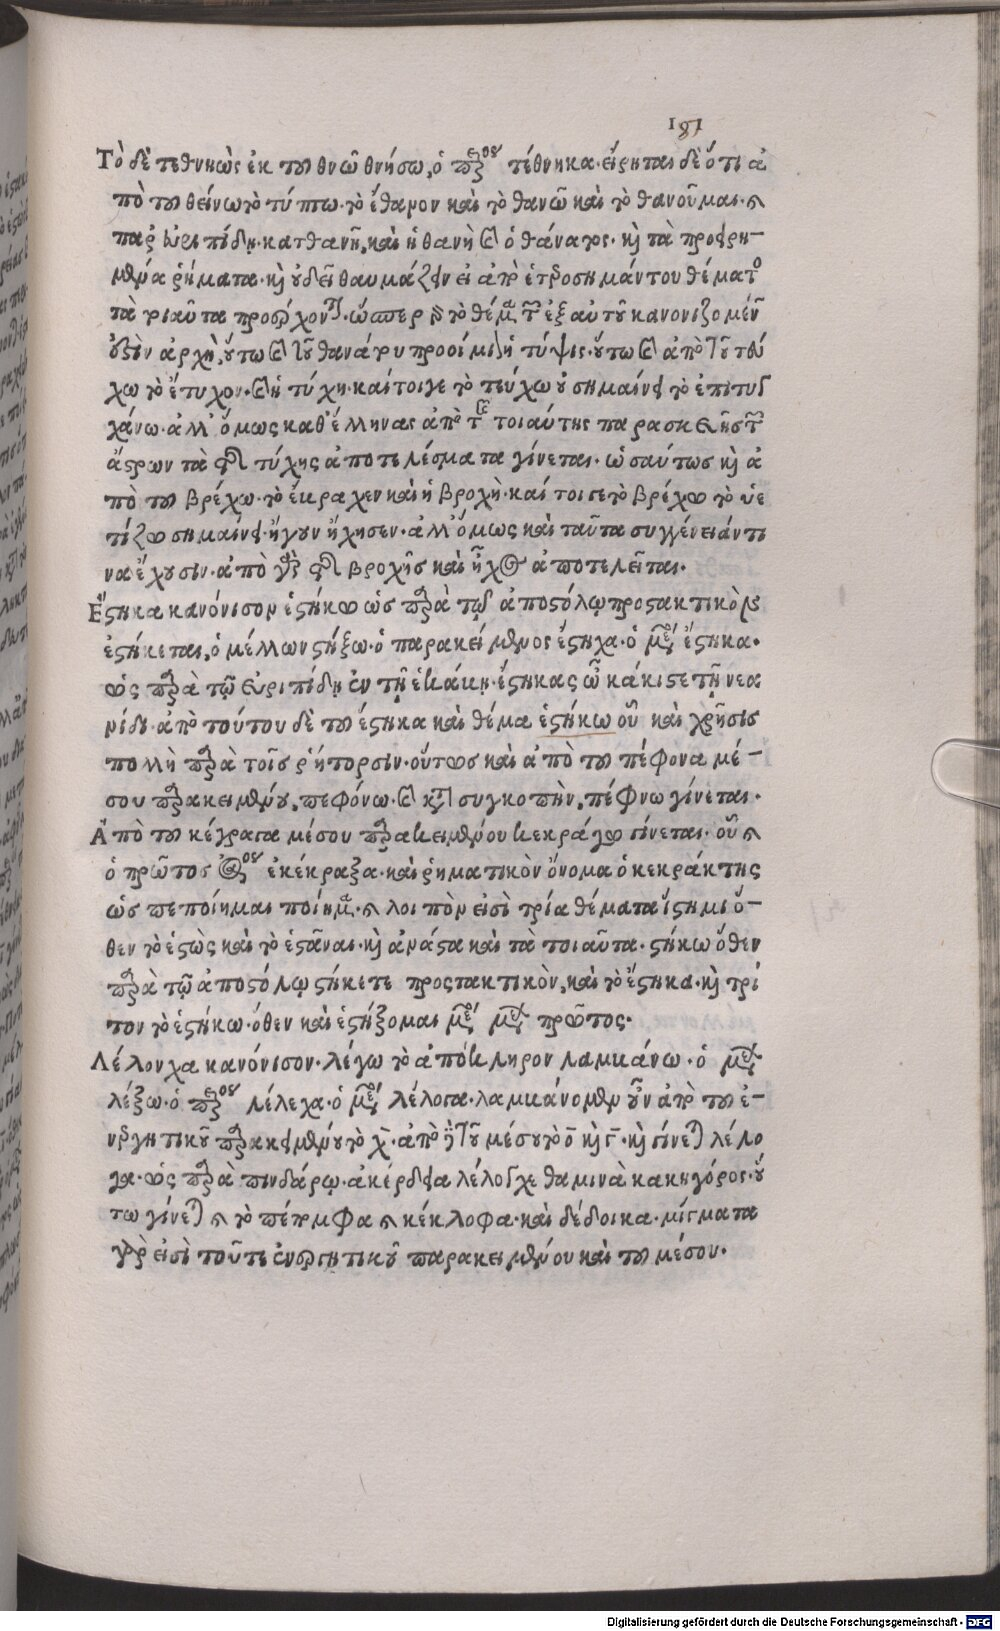 181
Τὸ δὲ τεθνηὼς ἐκ τοῦ θνῶ θνήσω, ὁ τέθνηκα. εἴρηται δὲ ὅτι ἀ
πὸ τοῦ θείνω τὸ τύπτω. τὸ ἔθανον καὶ τὸ θανῶ καὶ τὸ θανοῦμαι. καὶ
παρ' εὐριπίδῃ. κατθανῇ, καὶ ἡ θανὴ καὶ ὁ θάνατος. καὶ τὰ προειρη-
μένα ῥήματα. καὶ οὐ δεῖ θαυμάζειν εἰ ἀπὸ ἑτεροσημάντου θέματος
τὰ τοιαῦτα προσέχον. ὥσπερ τὸ θέμα ἐξ αὐτοῦ κανονιζομέν
ἀρχὴ, οὕτω καὶ τοῦ θανάτου προοίμι ἡ τύψις. οὕτω καὶ ἀπὸ τοῦ τεύ
χω τὸ ἔτυχον. καὶ ἡ τύχη. καίτοιγε τὸ τεύχω οὐ σημαίνει τὸ ἐπιτυγ
χάνω. ἀλλ' ὅμως καθ' ἕλληνας ἀπὸ τῆς τοιαύτης παρασκευῆς τῶν
ἄστρων τὰ τῆς τύχης ἀποτελέσματα γίνεται. ὡσαύτως καὶ ἀ
πὸ τοῦ βρέχω. τὸ ἔκραχεν καὶ ἡ βροχὴ. καίτοιγε τὸ βρέχω τὸ ὑε
τίζω σημαίνει. ἤγουν ἤχησεν. ἀλλ' ὅμως καὶ ταῦτα συγγένειάν τι
να ἔχουσιν. ἀπὸ γὰρ τῆς βροχῆς καὶ ἦχος ἀποτελεῖται.
Ἕστηκα κανόνισον ἑστήκω ὡς παρὰ τῷ ἀποστόλῳ προστακτικὸν
ἑστήκεται, ὁ μέλλων στήξω. ὁ παρακείμενος ἕστηχα. ὁ μέσος ἕστηκα.
ὡς παρὰ τῷ εὐριπίδῃ ἐν τῇ ἑκάβῃ. ἕστηκας ὦ κάκιστε τῇ νεα
νίδι. ἀπὸ τούτου δὲ τοῦ ἕστηκα καὶ θέμα ἑστήκω οὗ καὶ χρῆσις
πολλὴ παρὰ τοῖς ῥήτορσιν. οὕτως καὶ ἀπὸ τοῦ πέφονα μέ-
σου παρακειμένου, πεφόνω. καὶ κατὰ συγκοπὴν, πέφνω γίνεται.
Ἀπὸ τοῦ κέκραγα μέσου παρακειμένου κεκράγω γίνεται. οὗ καὶ
ὁ πρῶτος ἐκέκραξα. καὶ ῥηματικὸν ὄνομα ὁ κεκράκτης
ὡς πεποίημαι ποίημα. καὶ λοιπὸν εἰσὶ τρία θέματα ἵστημι ὅ-
θεν τὸ ἑστὼς καὶ τὸ ἑστᾶναι. καὶ ἀνάστα καὶ τὰ τοιαῦτα. στήκω ὅθεν
παρὰ τῷ ἀποστόλῳ στήκετε προστακτικὸν, καὶ τὸ ἕστηκα. καὶ τρί
τον τὸ ἑστήκω. ὅθεν καὶ ἑστήξομαι μέσος μέλλων πρῶτος.
Λέλογχα κανόνισον. λέγω τὸ ἀπόκληρον λαμβάνω. ὁ μέλλων
λέξω. ὁ λέλεχα. ὁ μέσος λέλογα. λαμβάνομεν οὖν ἀπὸ τοῦ ἐ-
νεργητικοῦ παρακειμένου τὸ χ. ἀπὸ δὲ τοῦ μέσου τὸ ο καὶ γ. καὶ γίνεται λέλο
γχα. ὡς παρὰ πινδάρῳ. ἀκέρδεια λέλογχε θαμινὰ κακηγόρος. οὕ
τω γίνεται καὶ τὸ πέπομφα καὶ κέκλοφα. καὶ δέδοικα. μίγματα
γάρ εἰσὶ τοῦ τε ἐνεργητικοῦ παρακειμένου καὶ τοῦ μέσου.
Digitalisierung gefördert durch die Deutsche Forschungsgemeinschaft - DFG